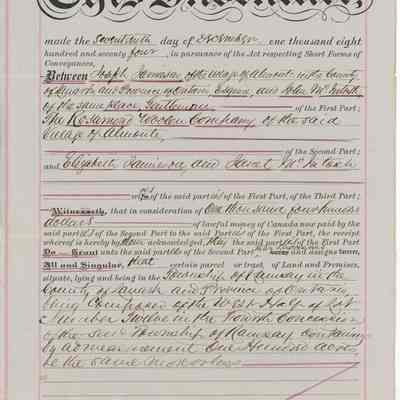 This Indenture,
made the Seventeenth day of December one thousand eight
hundred and seventy four, in pursuance of the Act respecting Short Forms of
Conveyances,
Between Joseph Jamieson of the Village of Almonte in the County
of Lanark and Province of Ontario Esquire, and John McIntosh
of the same place, Gentleman of the First Part;
The Rosamond Woolen Company of the said
Village of Almonte,
of the Second Part;
and Elizabeth Jamieson, and Janet McIntosh
of the said part ies of the First Part, of the Third Part;
Witnesseth, that in consideration of One thousand four hundred
dollars of lawful money of Canada now paid by the
said part of the Second Part to the said part ies of the First Part, the receipt
whereof is hereby by them acknowledged, the said part ies of the First Part
Do Grant unto the said part of the Second Part, and assigns
All and Singular, that certain parcel or tract of Land and Premises,
situate, lying and being in the Township of Ramsay in the
County of Lanark and Province of Ontario
being composed of the West Half of Lot
Number Twelve in the Fourth Concession
of the said Township of Ramsay containing
by admeasurement One Hundred acres
be the same more or less